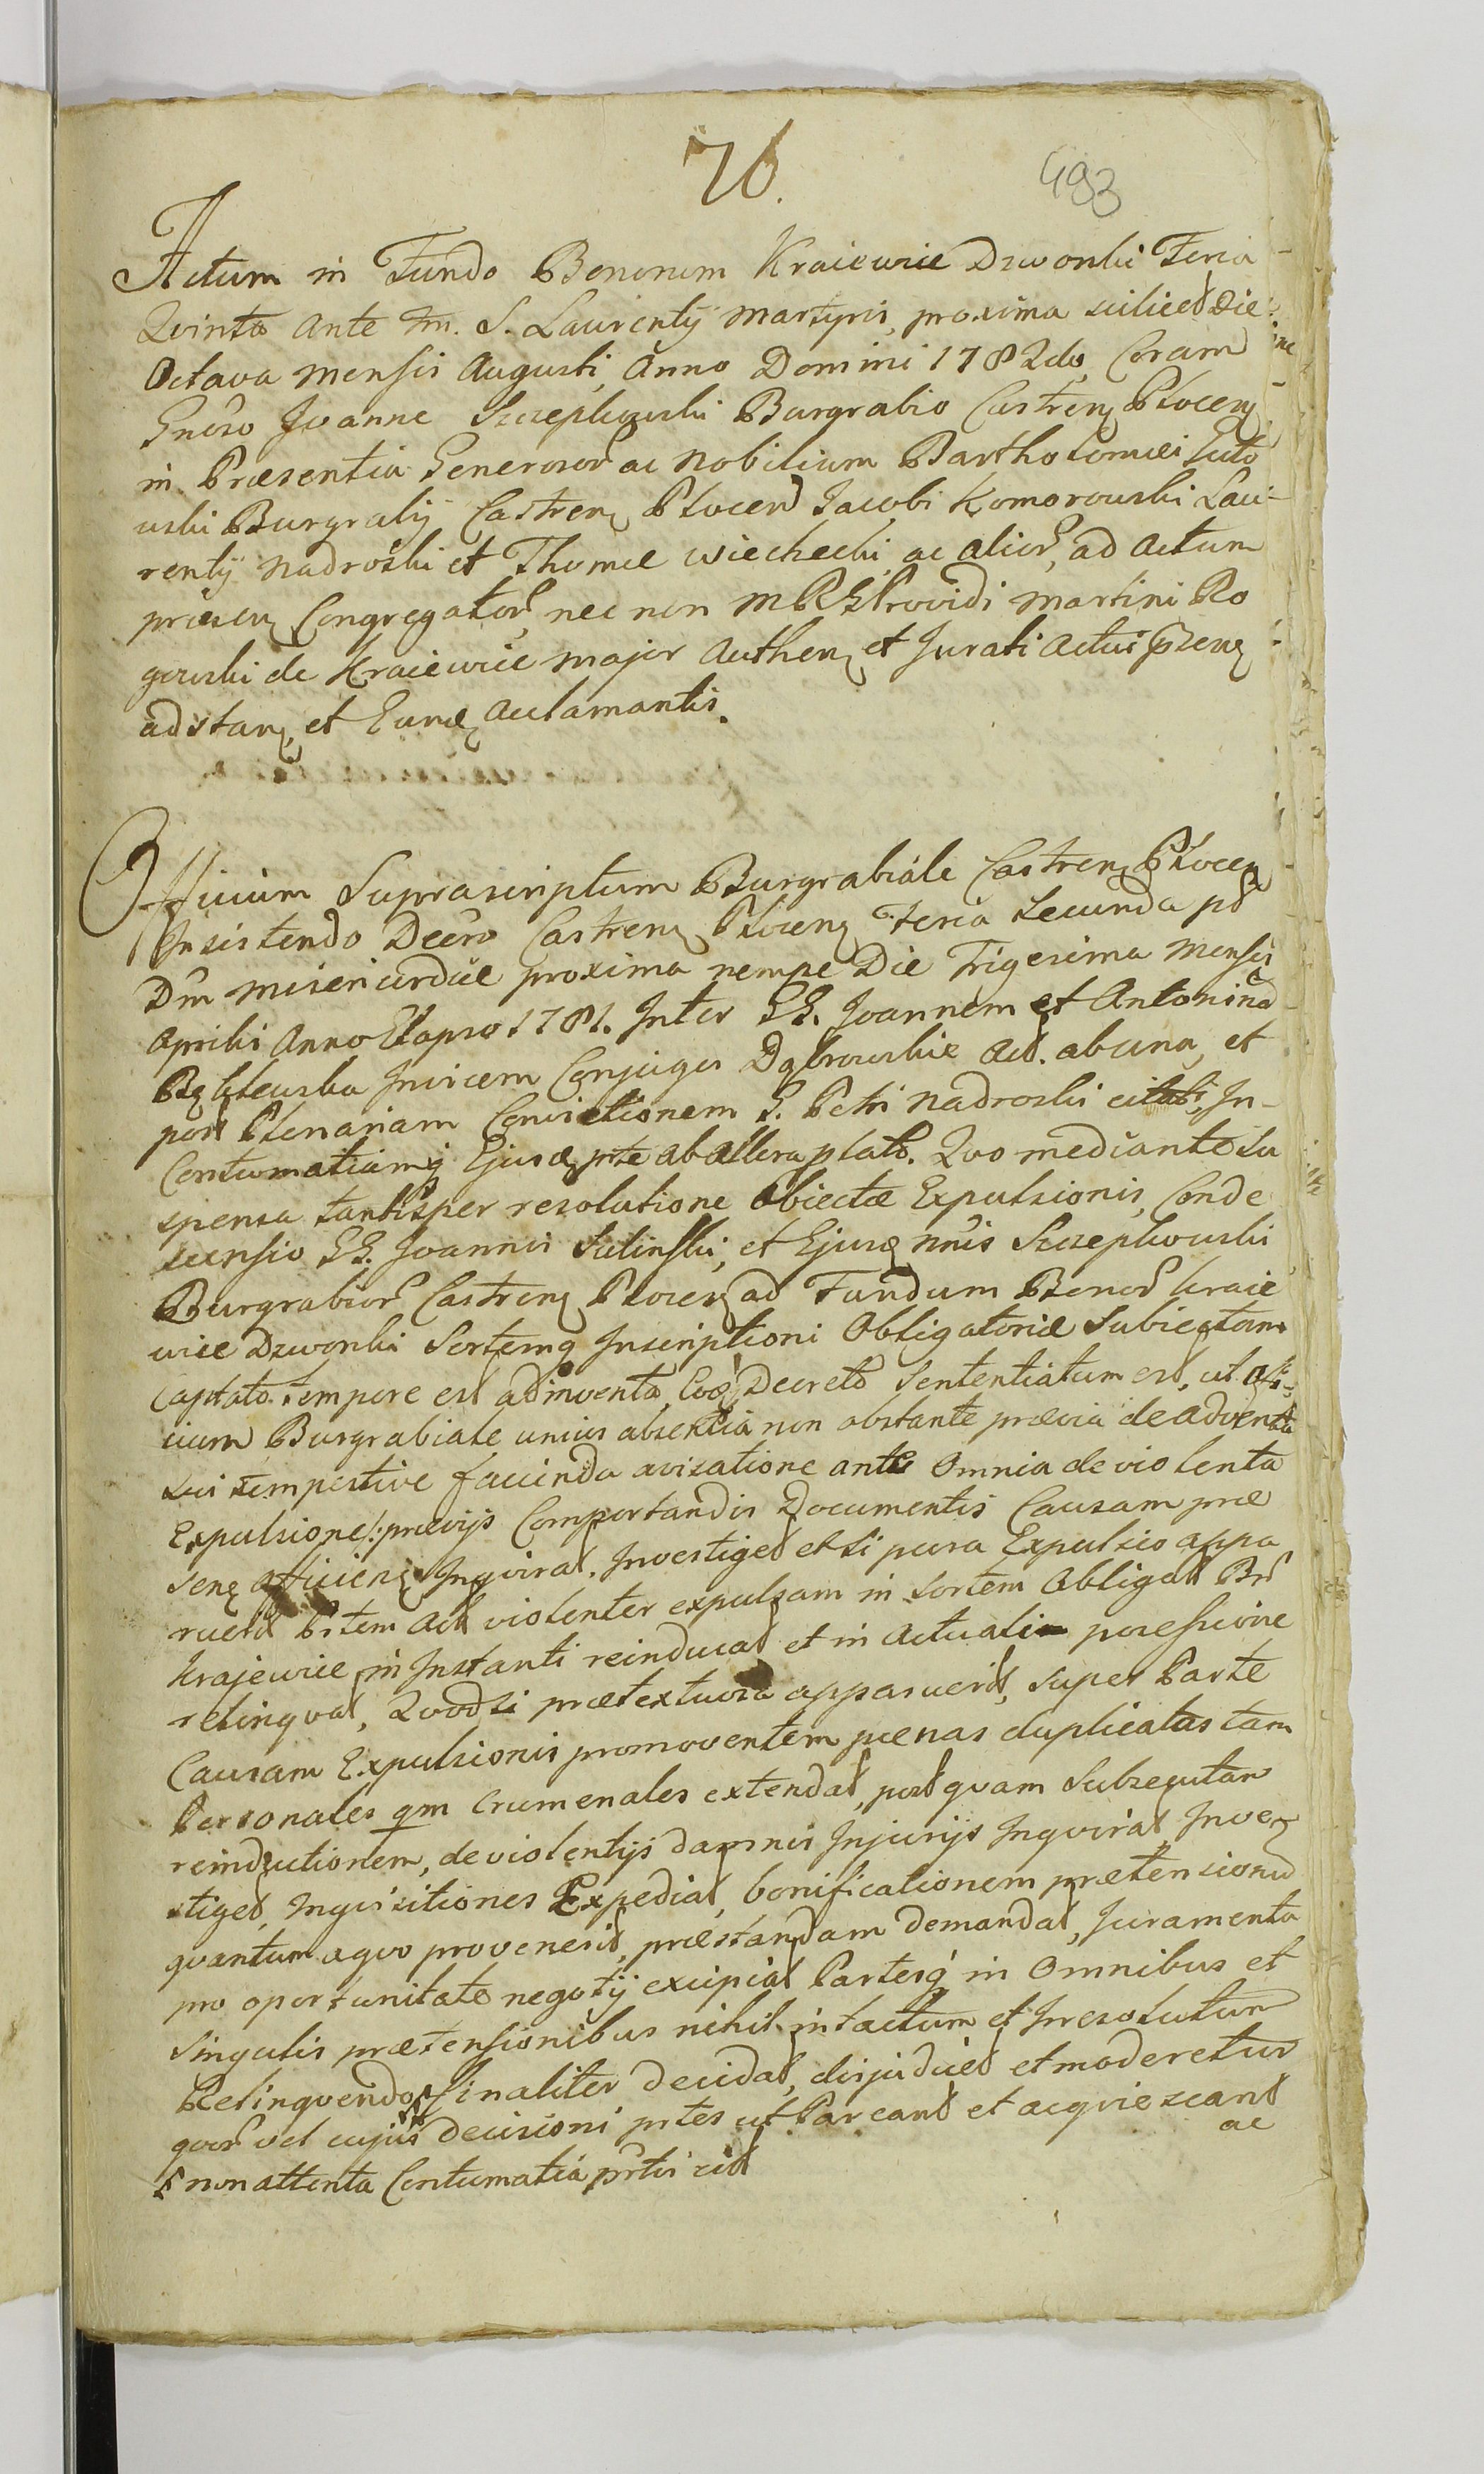 76.
493
Actum in Fundo Bonorum Kraiewice Dzwonki Feria
Qvinta ante fm. S. Laurentÿ Martyris, proxima scilicet Die
Octava mensis Augusti, Anno Domini 1782do, Coram
Gnoso Joanne Szczepkowski Burgrabio Castren Płocen
in Præsentia Generosor ac Nobilium Bartholomæi Guto
wski Burgrabÿ Castren Płocen Jacobi Komorowski Lau-
rentÿ Nadroski et Thomæ Wiechecki, ac alior, ad Actum
præsen Congregator, nec non MRG Providi Martini Ro
gowski de Kraiewice major Authen et Jurati Actui præsen
adstan, et Eundē aclamantis.
Officium Suprascriptum Burgrabiale Castren Płocen
Insistendo Decro Castren Płocen Feria Secunda pt
Dm Misericordiæ proxima nempe Die Trigesima Mensis
Aprilis Anno Elapso 1781. Inter GG. Joannem et Antoninā
Conjuges Dąbrowskie Act. ab una, et
post Plenariam Convictionem G. Petri Nadroski citati, In-
Contumatiamq Ejusdē prte ab altera plato. Qvo mediante Su
spensa tantisper resolutione Obiectæ Expulsionis, Conde
scensio GG. Joannis Sulinski, et Ejusdē nnis Szczepkowski
Burgrabior Castren Płocen ad Fundum Bonor Kraie
wice Dzwonki Sortemq Inscriptioni Obligatoriæ Subiectam
Captato tempore est adinventa, Eoqz Decreto Sententiatum est, ut Offi-
cium Burgrabiale unius absentia non obstante prævia de adventu
sui tempestive facienda avisatione ante Omnia de violenta
Expulsione /: prævijs Comportandis Documentis Causam præ
senē afficien Inqvirat. Investiget et si pura Expulsio appa
ruerit Prtem Act violenter expulsam in Sortem Obligat Br
Krajewice in Instanti reinducat et in Actuali possessione
relinqvat, Qvodsi prætextuosa apparuerit, super Parte
Causam Expulsionis promoventem pœnas duplicatas tam
Personales qm Crumenales extendat, postqvam Subsecutam
reinductionem, de violentijs damnis Injurijs Inqvirat Inve
stiget, Inqvisitiones Expediat, bonificationem prætensionū
qvantum aqvo provenerit, præstandam demandat, Juramenta
pro oportunitate negotÿ excipiat Partesq in Omnibus et
Singulis prætensionibus nihil intactum et Irresolutum
Relinqvendo finaliter decidat, disjudicet et moderetur
qvor vel cujus Decisioni prtes ut Pareant et acqviescant
ac
non attenta Contumatia prtis cit